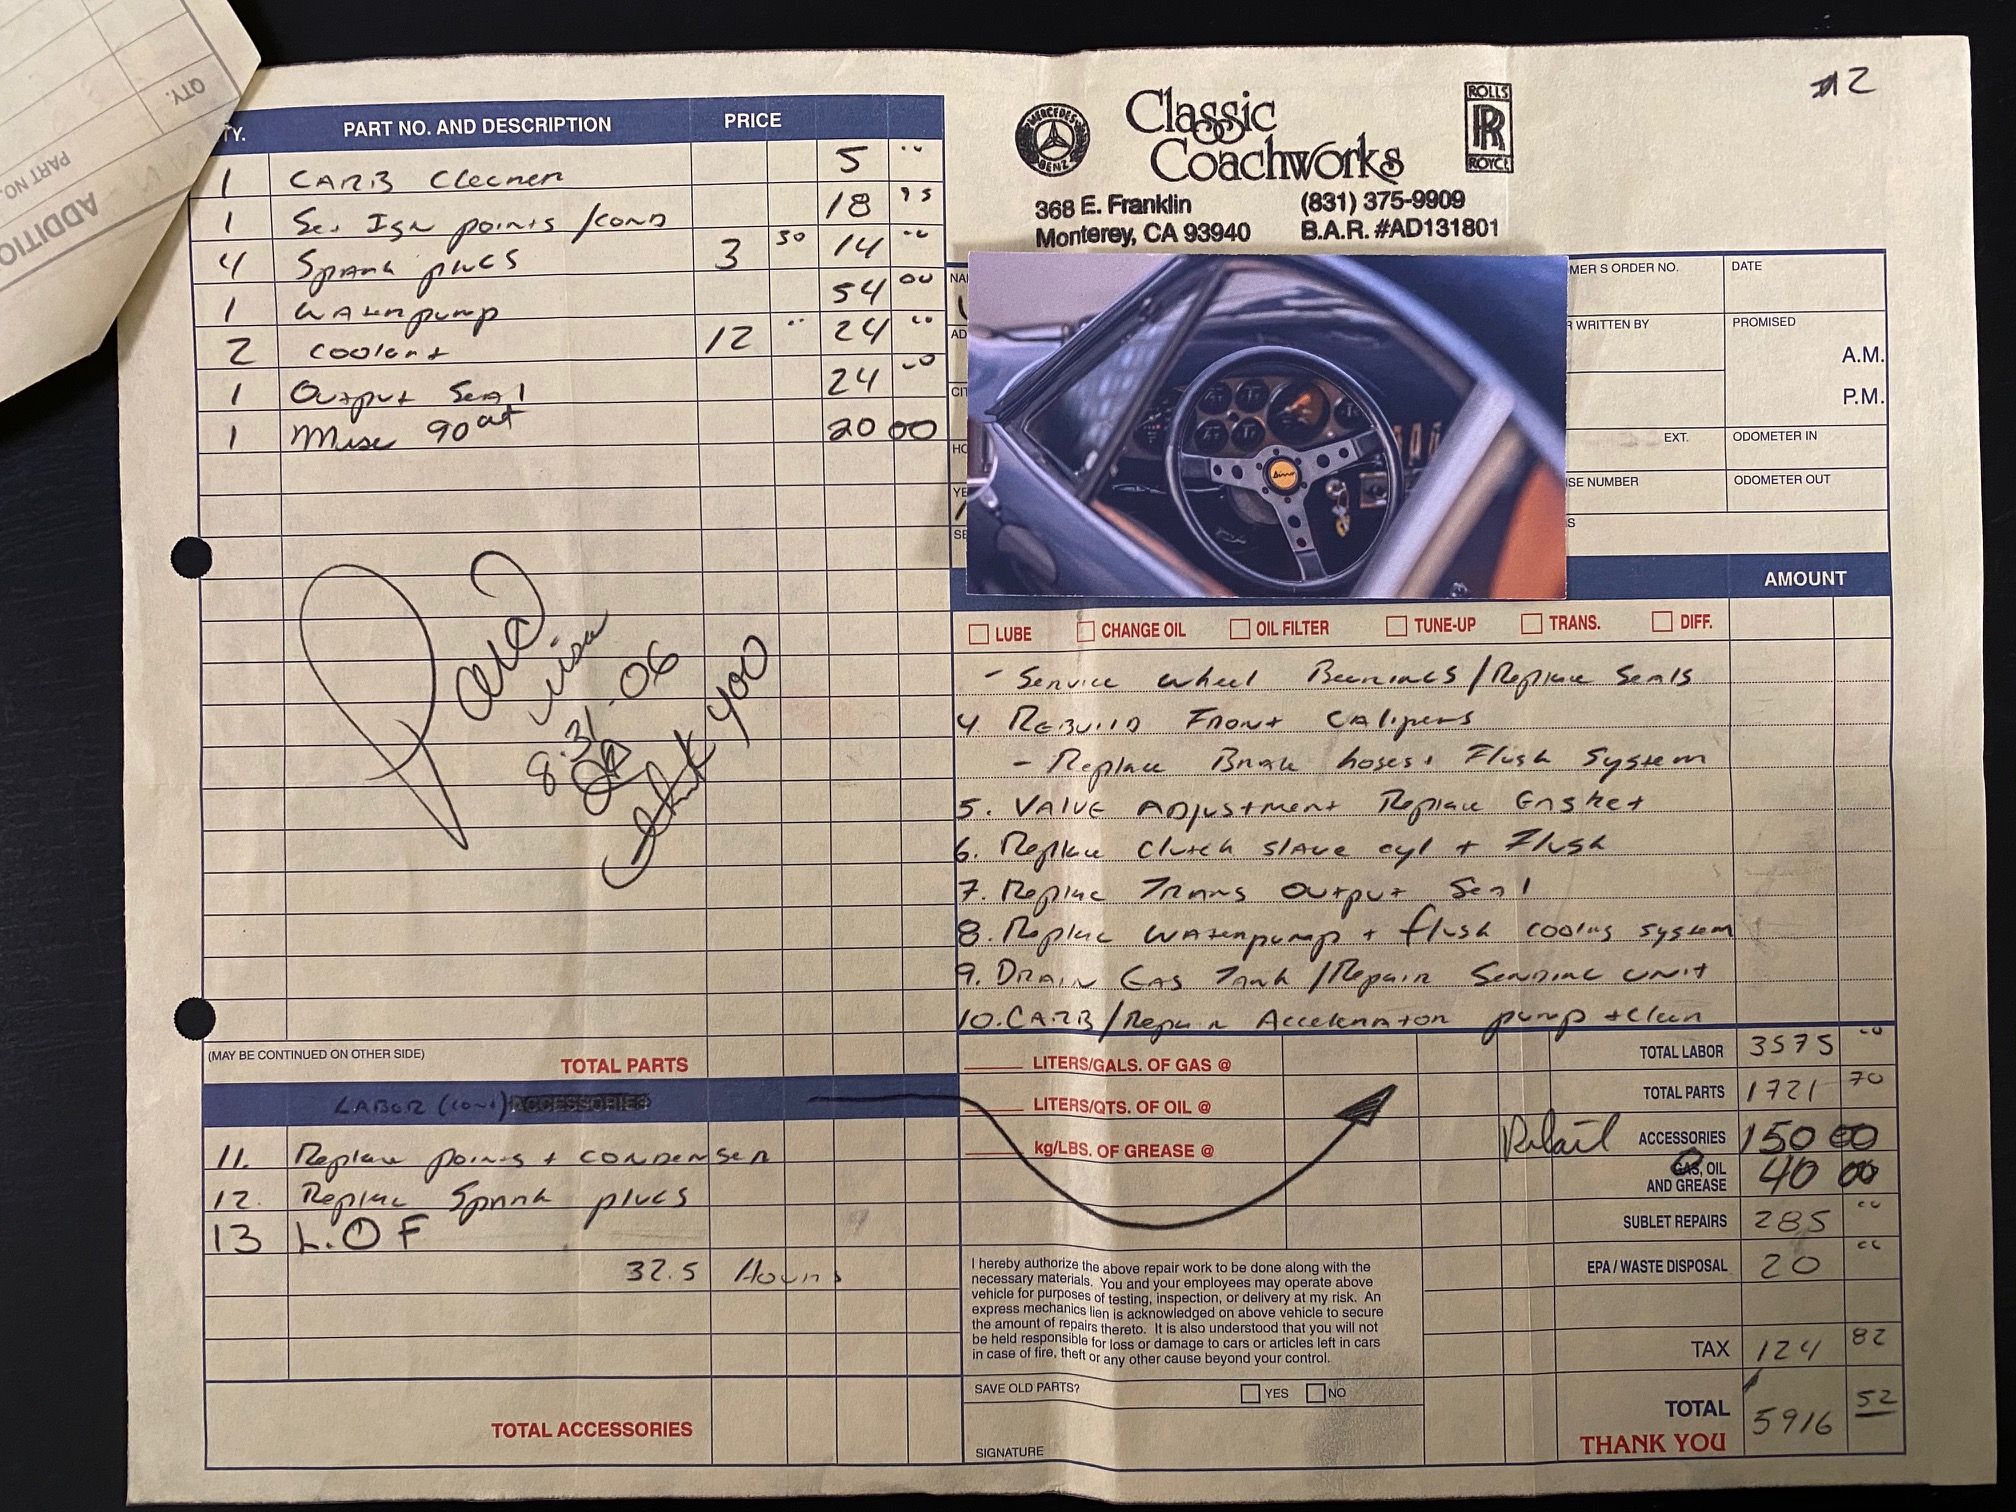 QTY.
PART NO.
ADDITIO
#2
MERCEDES
BENZ
Classic
Coachworks
ROLLS
RR
ROYCE
368 E. Franklin
Monterey, CA 93940
(831) 375-9909
B.A.R. #AD131801
TY. PART NO. AND DESCRIPTION PRICE
1 CARB Cleener 5 ··
1 Set Ign points/cond 18 95
4 Spark plugs 3 50 14 ··
1 Waterpump 54 00
2 Coolant 12 ·· 24 ··
1 Output Seal 24 00
1 Misc 90wt 20 00
Paid
visa
8.31.06
Thank you
(MAY BE CONTINUED ON OTHER SIDE)
TOTAL PARTS
LABOR (cont) ACCESSORIES
11. Replace points + condenser
12. Replace Spark plugs
13 L.O F
32.5 Hours
TOTAL ACCESSORIES
NA
AD
CIT
HO
YE
SE
MER S ORDER NO.
DATE
R WRITTEN BY
PROMISED
A.M.
P.M.
EXT.
ODOMETER IN
SE NUMBER
ODOMETER OUT
S
Dino
AMOUNT
LUBE CHANGE OIL OIL FILTER TUNE-UP TRANS. DIFF.
- Service wheel Bearings/Replace Seals
4 REBUILD Front Calipers
- Replace Brake hoses + Flush System
5. VALVE ADjustment Replace Gasket
6. Replace Clutch slave cyl + Flush
7. Replace Trans output Seal
8. Replace Waterpump + flush cooling system
9. DRAIN Gas Tank/Repair Sending unit
10. CARB/Repair Accelerator pump + Clean
LITERS/GALS. OF GAS @
LITERS/QTS. OF OIL @
kg/LBS. OF GREASE @
TOTAL LABOR 3575 00
TOTAL PARTS 1721 70
ACCESSORIES 150 00
GAS, OIL
AND GREASE 40 00
SUBLET REPAIRS 285 00
EPA / WASTE DISPOSAL 20 00
TAX 124 82
TOTAL 5916 52
THANK YOU
I hereby authorize the above repair work to be done along with the
necessary materials. You and your employees may operate above
vehicle for purposes of testing, inspection, or delivery at my risk. An
express mechanics lien is acknowledged on above vehicle to secure
the amount of repairs thereto. It is also understood that you will not
be held responsible for loss or damage to cars or articles left in cars
in case of fire, theft or any other cause beyond your control.
SAVE OLD PARTS? YES NO
SIGNATURE